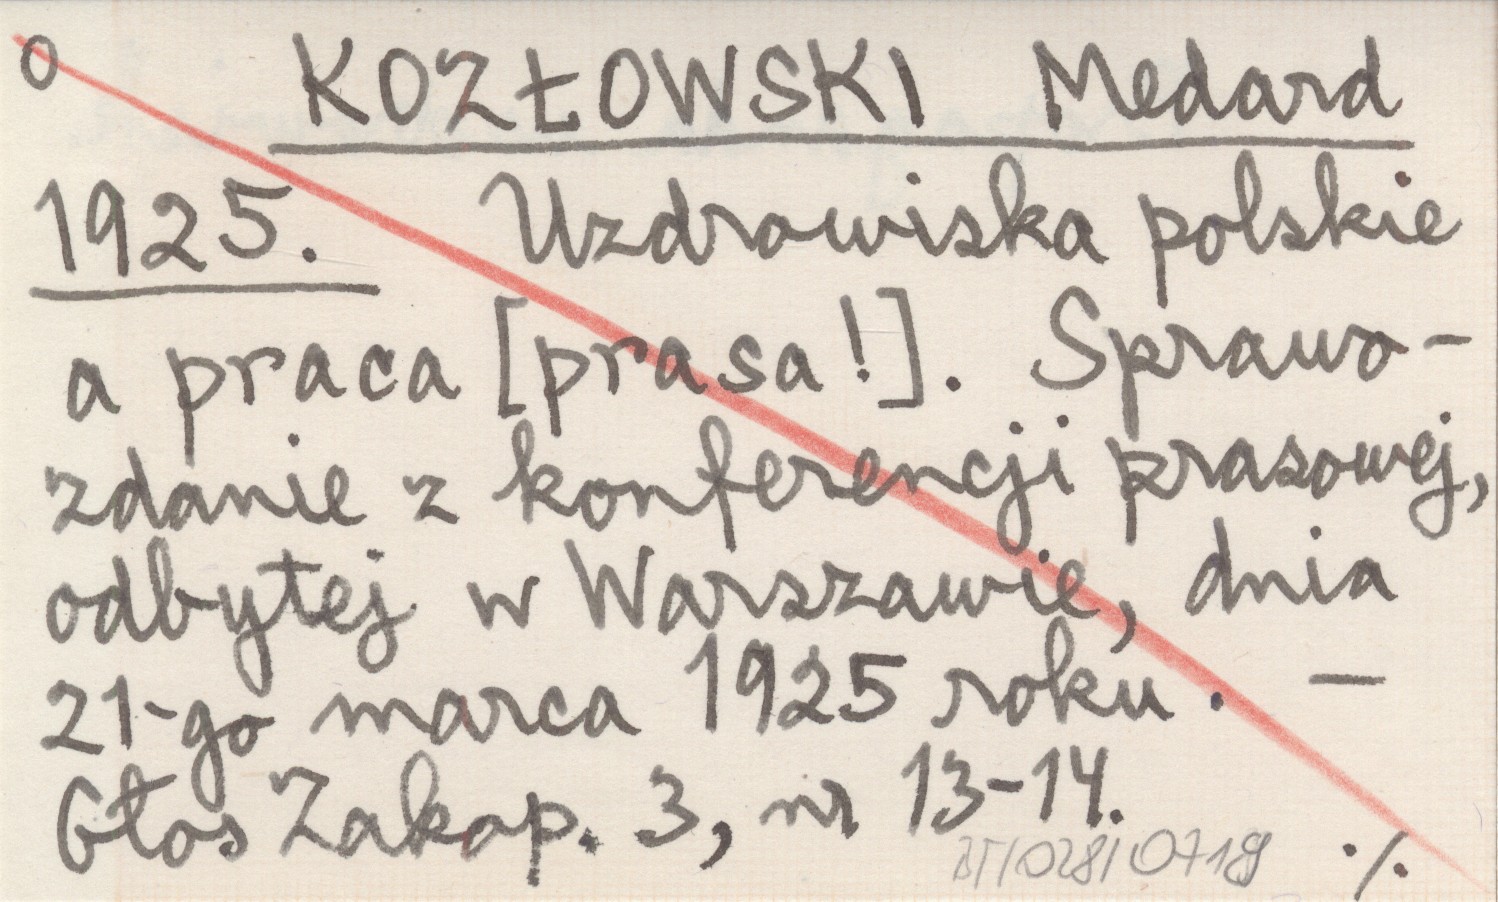 o KOZŁOWSKI Medard
1925. Uzdrowiska polskie
a praca [prasa!]. Sprawo-
zdanie z konferencji prasowej,
odbytej w Warszawie, dnia
21-go marca 1925 roku. —
Głos Zakop. 3, nr 13-14.
./.